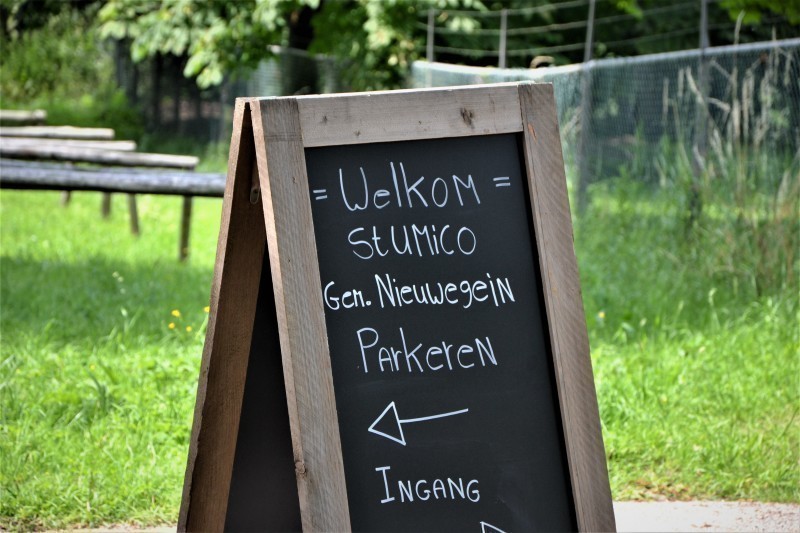 = Welkom =
StUMiCO
Gem. Nieuwegein
Parkeren
Ingang